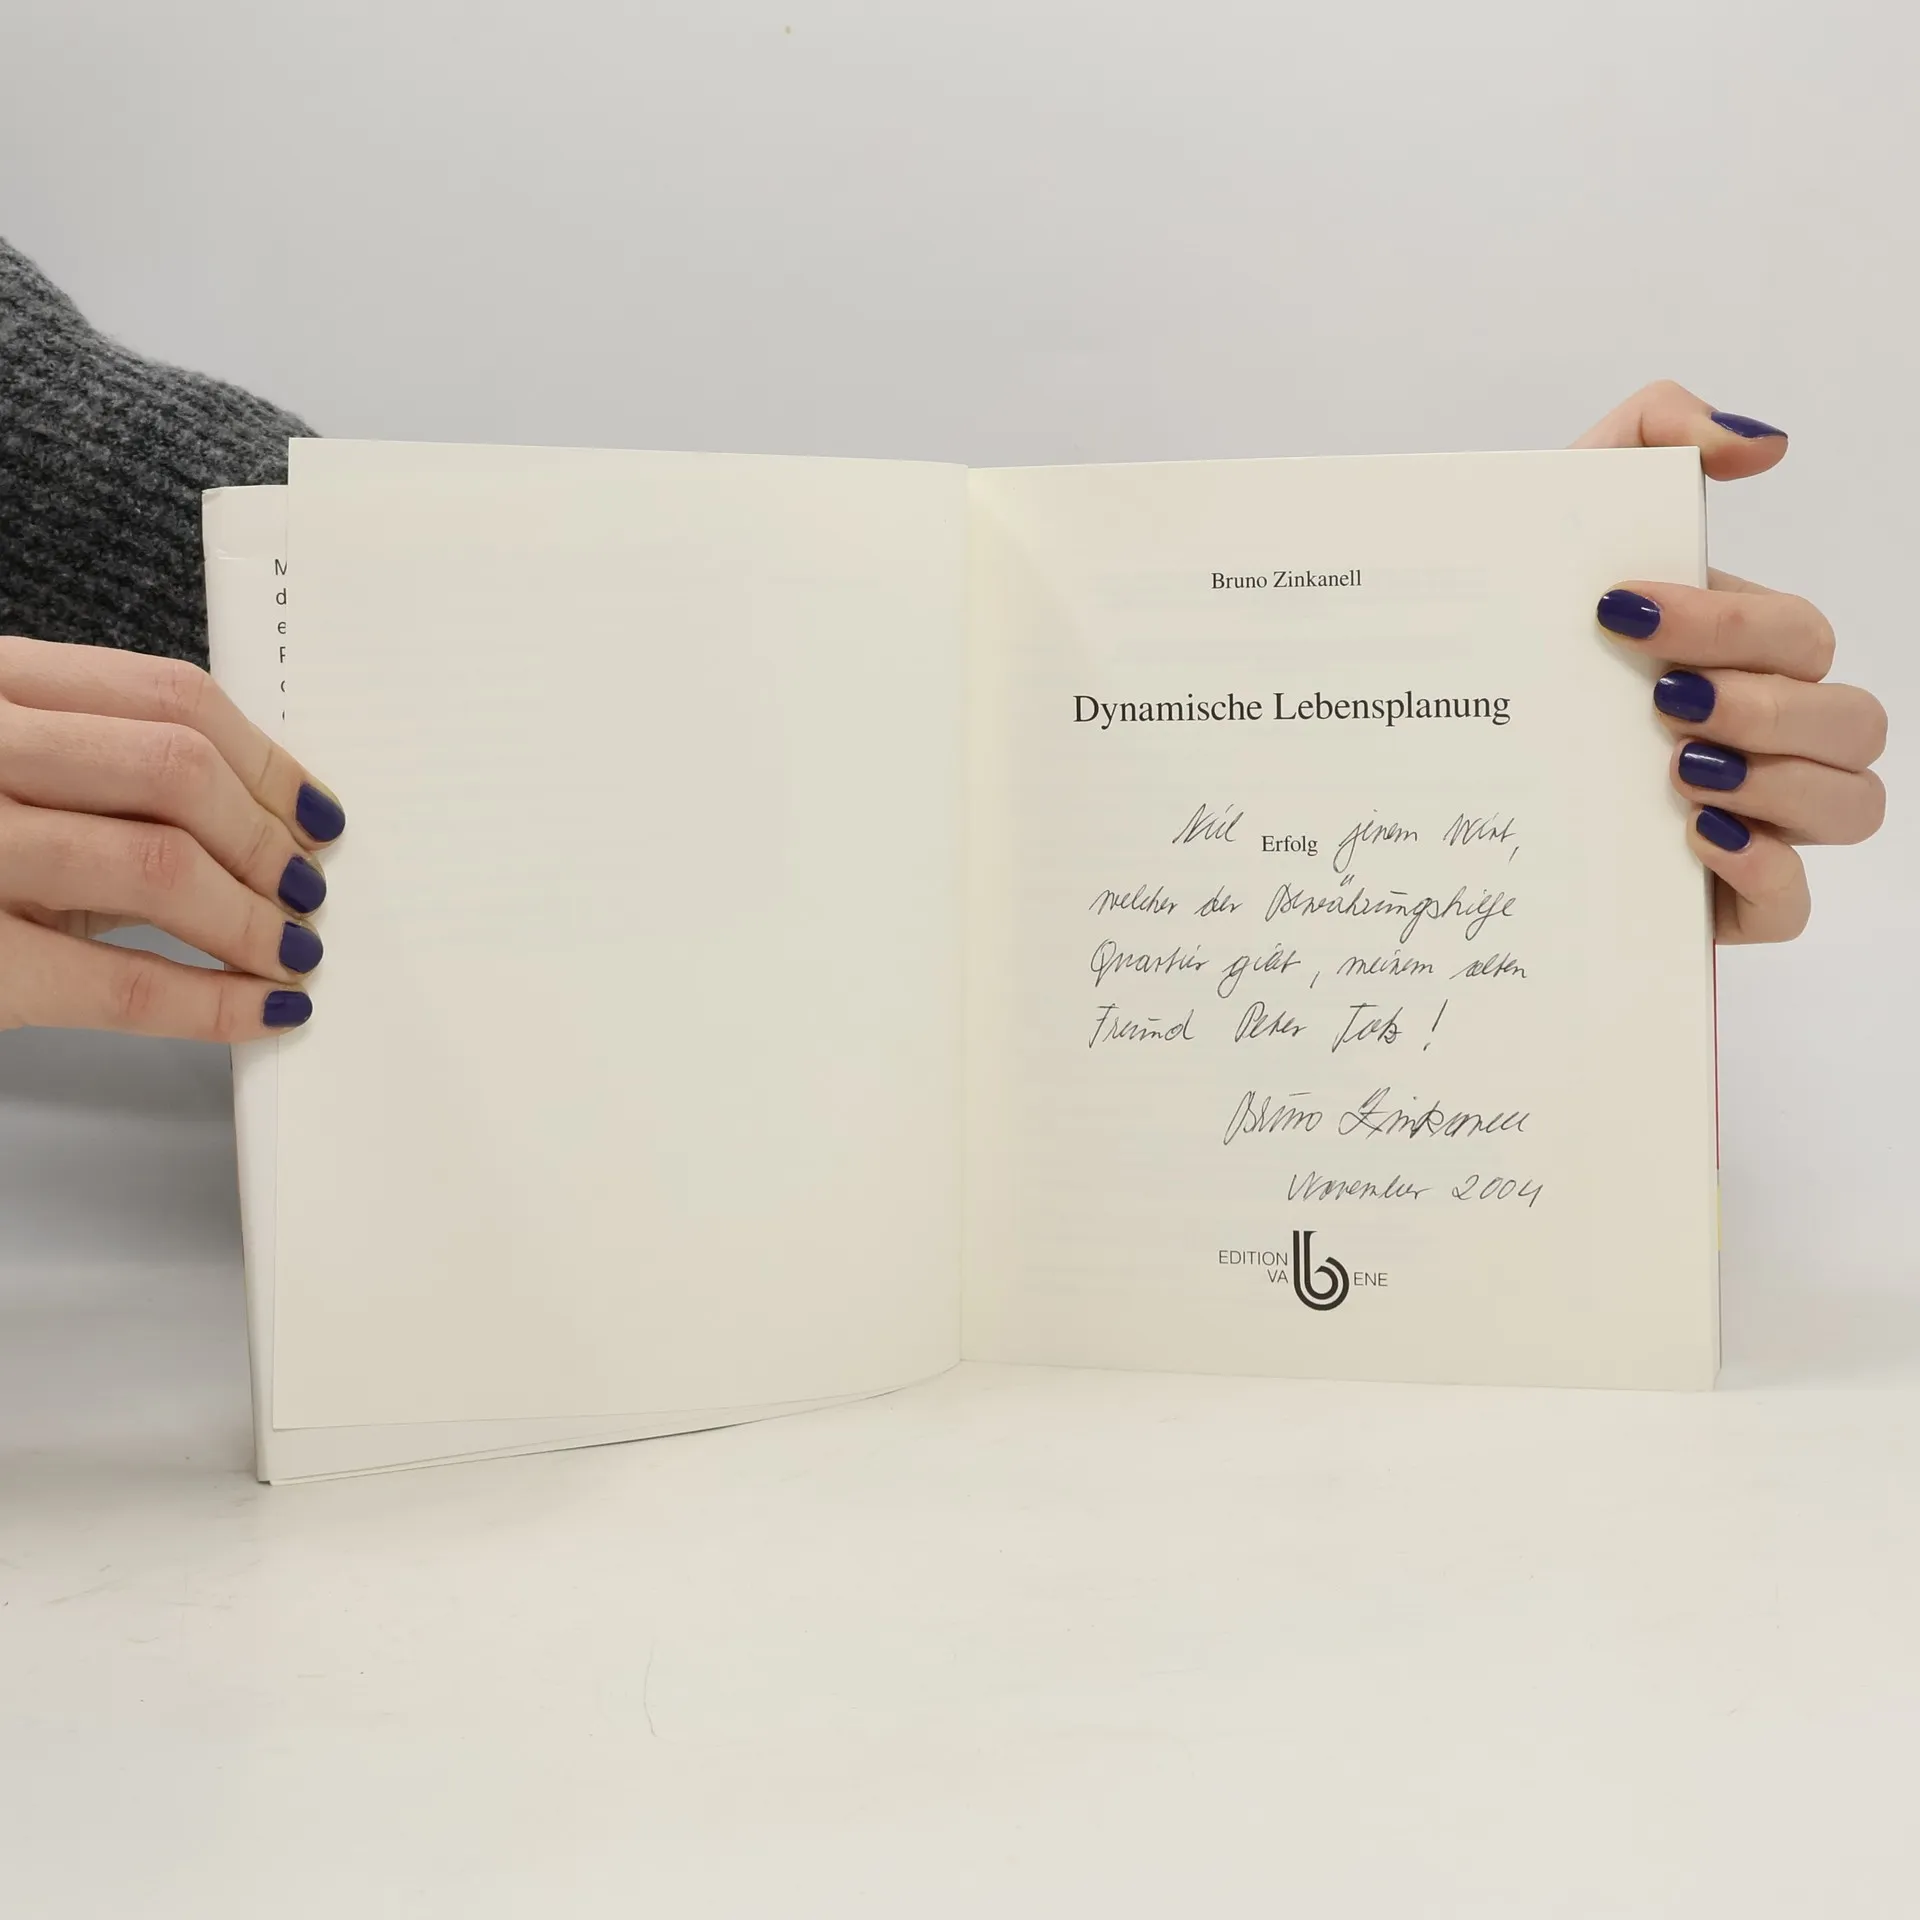 M
d
e
F
Bruno Zinkanell
Dynamische Lebensplanung
Viel Erfolg jenem Wirt,
welcher der Bewährungshilfe
Quartier gibt, meinem alten
Freund Peter !
Bruno Zinkanell
November 2004
EDITION
VA b ENE